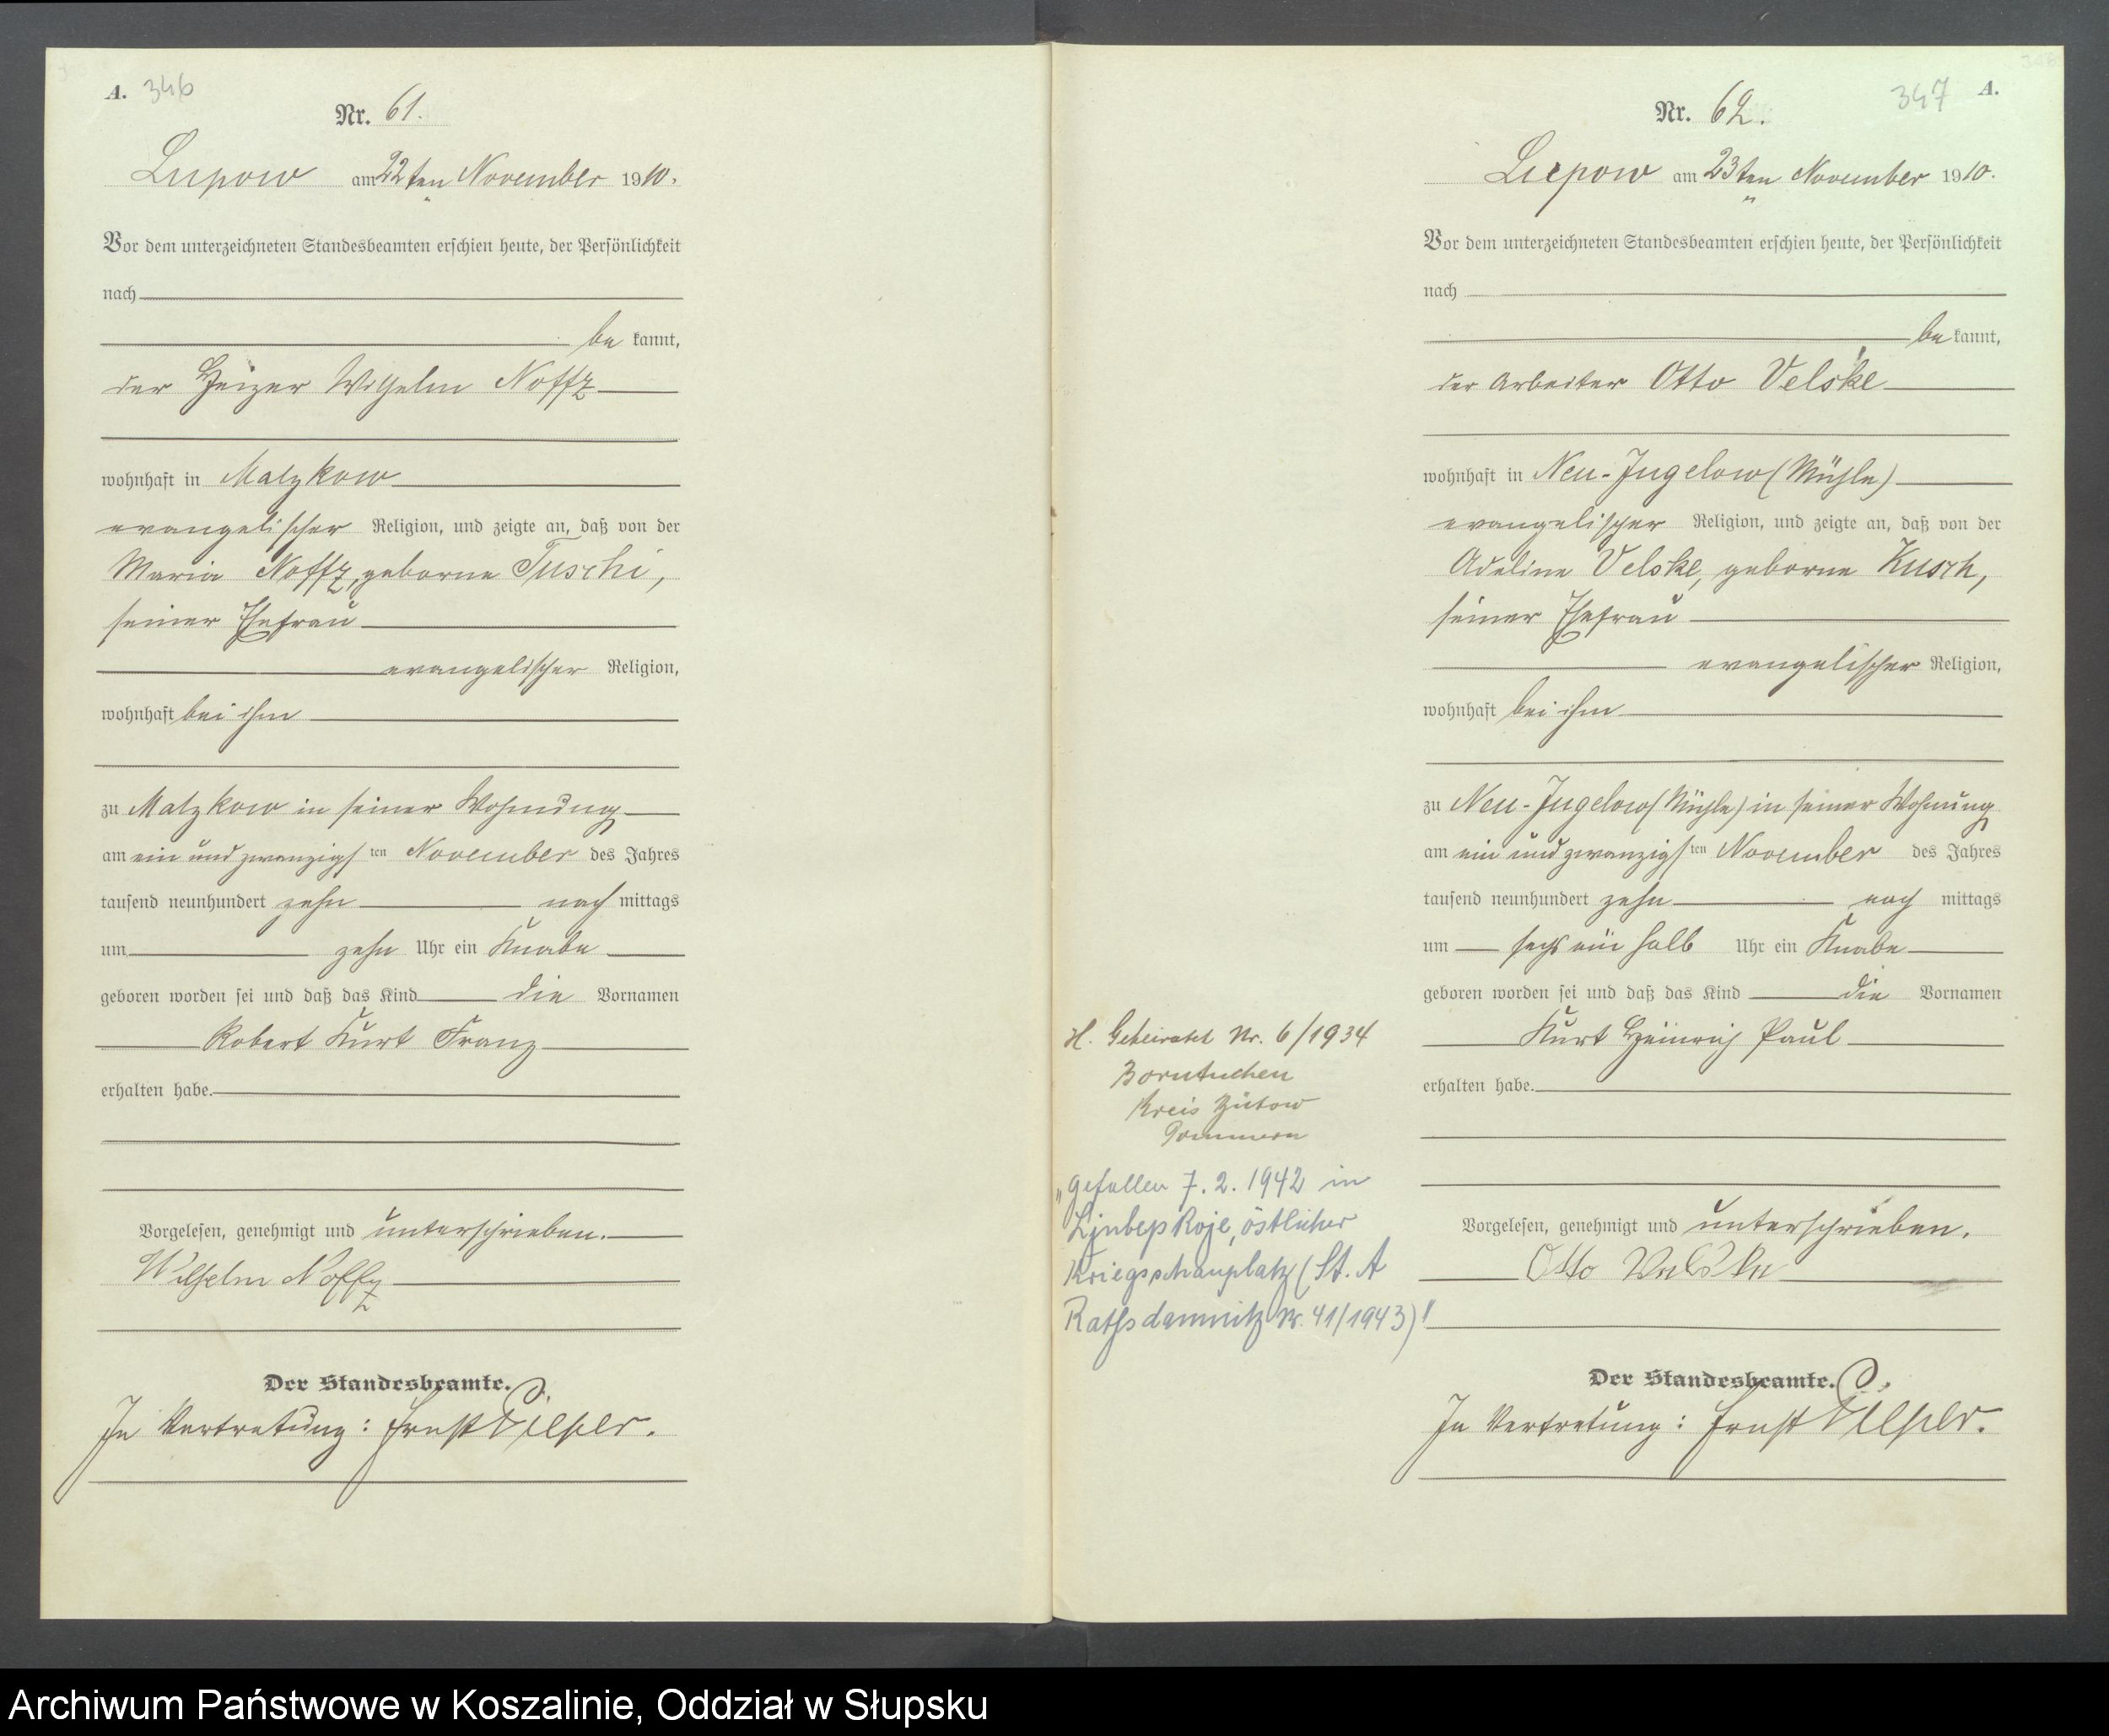 A. 346
Nr. 61.
Lupow am 22ten November 1910.
Vor dem unterzeichneten Standesbeamten erschien heute, der Persönlichkeit
nach
be kannt,
der Heizer Wilhelm Noffz
wohnhaft in Malzkow
evangelischer Religion, und zeigte an, daß von der
Maria Noffz, geborne Tuschi,
seiner Ehefrau
evangelischer Religion,
wohnhaft bei ihm
zu Malzkow in seiner Wohnung
am ein und zwanzigsten November des Jahres
tausend neunhundert zehn nach mittags
um zehn Uhr ein Knabe
geboren worden sei und daß das Kind die Vornamen
Robert Kurt Franz
erhalten habe.
Vorgelesen, genehmigt und unterschrieben.
Wilhelm Noffz
Der Standesbeamte.
In Vertretung: Ernst
347 A.
Nr. 62.
Lupow am 23ten November 1910.
Vor dem unterzeichneten Standesbeamten erschien heute, der Persönlichkeit
nach
be kannt,
der Arbeiter Otto Velske
wohnhaft in Neu-Jugelow (Mühle)
evangelischer Religion, und zeigte an, daß von der
Adeline Velske, geborne Kusch,
seiner Ehefrau
evangelischer Religion,
wohnhaft bei ihm
zu Neu-Jugelow (Mühle) in seiner Wohnung
am ein und zwanzigsten November des Jahres
tausend neunhundert zehn nach mittags
um sechs ein halb Uhr ein Knabe
geboren worden sei und daß das Kind die Vornamen
Kurt Heinrich Paul
erhalten habe.
Vorgelesen, genehmigt und unterschrieben.
Otto Velske
Der Standesbeamte.
In Vertretung: Ernst
H. Geheiratet Nr. 6/1934
Borntuchen
Kreis Bütow
Pommern
"gefallen 7. 2. 1942 in
östlicher
Kriegsschauplatz (St. A
Rathsdamnitz Nr. 41/1943)"
Archiwum Państwowe w Koszalinie, Oddział w Słupsku